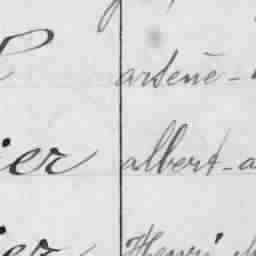 arsène -
ier albert - a
ier Henri